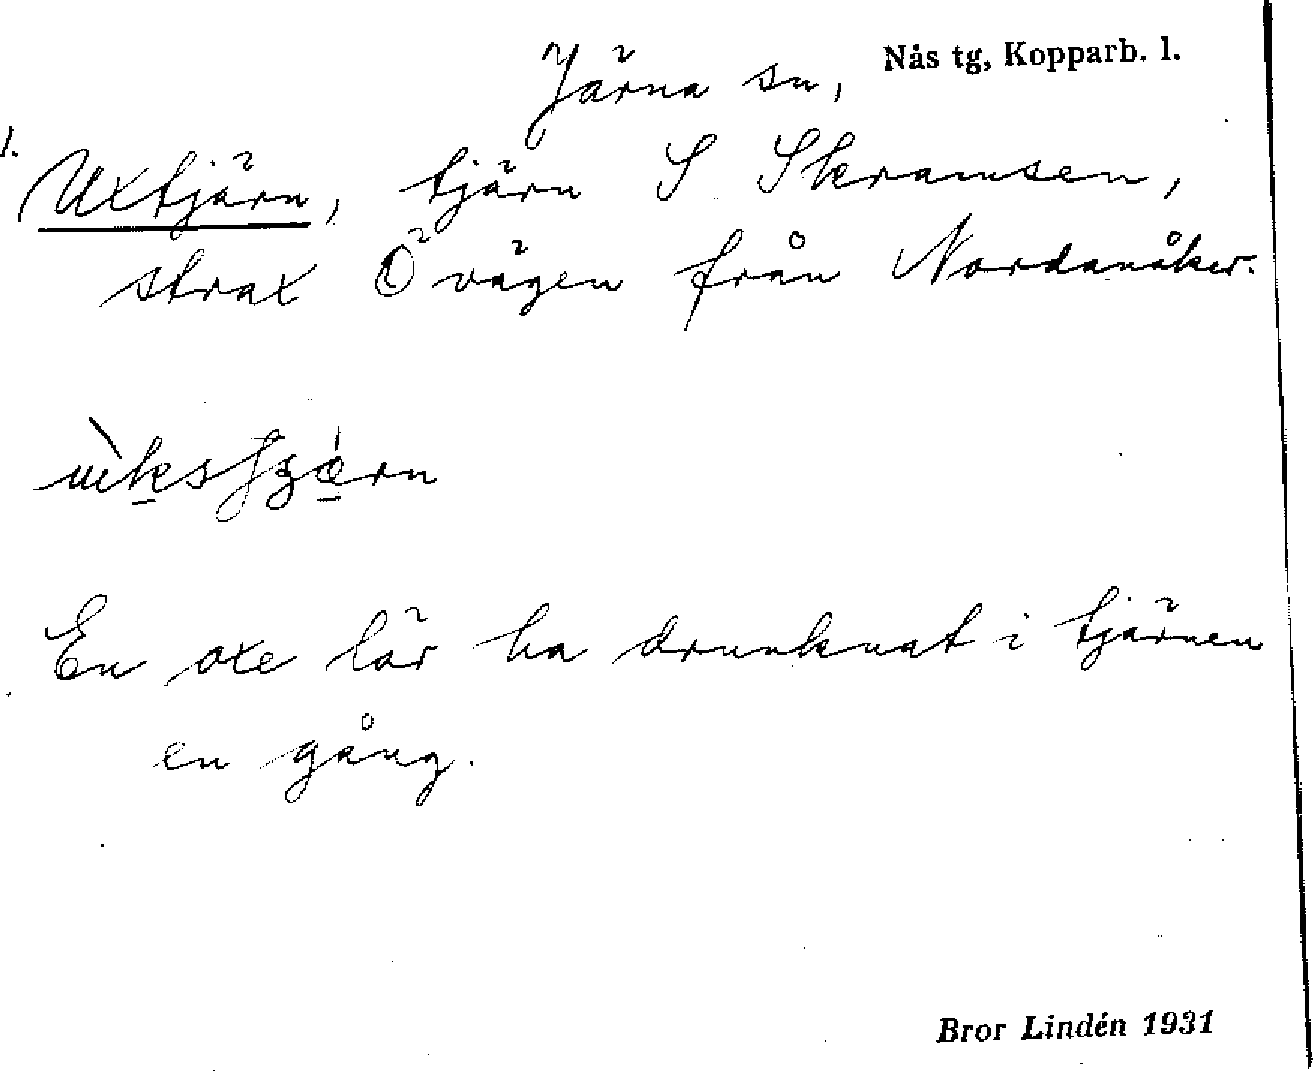 Järna sn, Nås tg, Kopparb. l.
1.
Uxtjärn, tjärn S Skramsen,
strax Ö vägen från Nordanåker.
En oxe lär ha drunknat i tjärnen
en gång.
Bror Lindén 1931